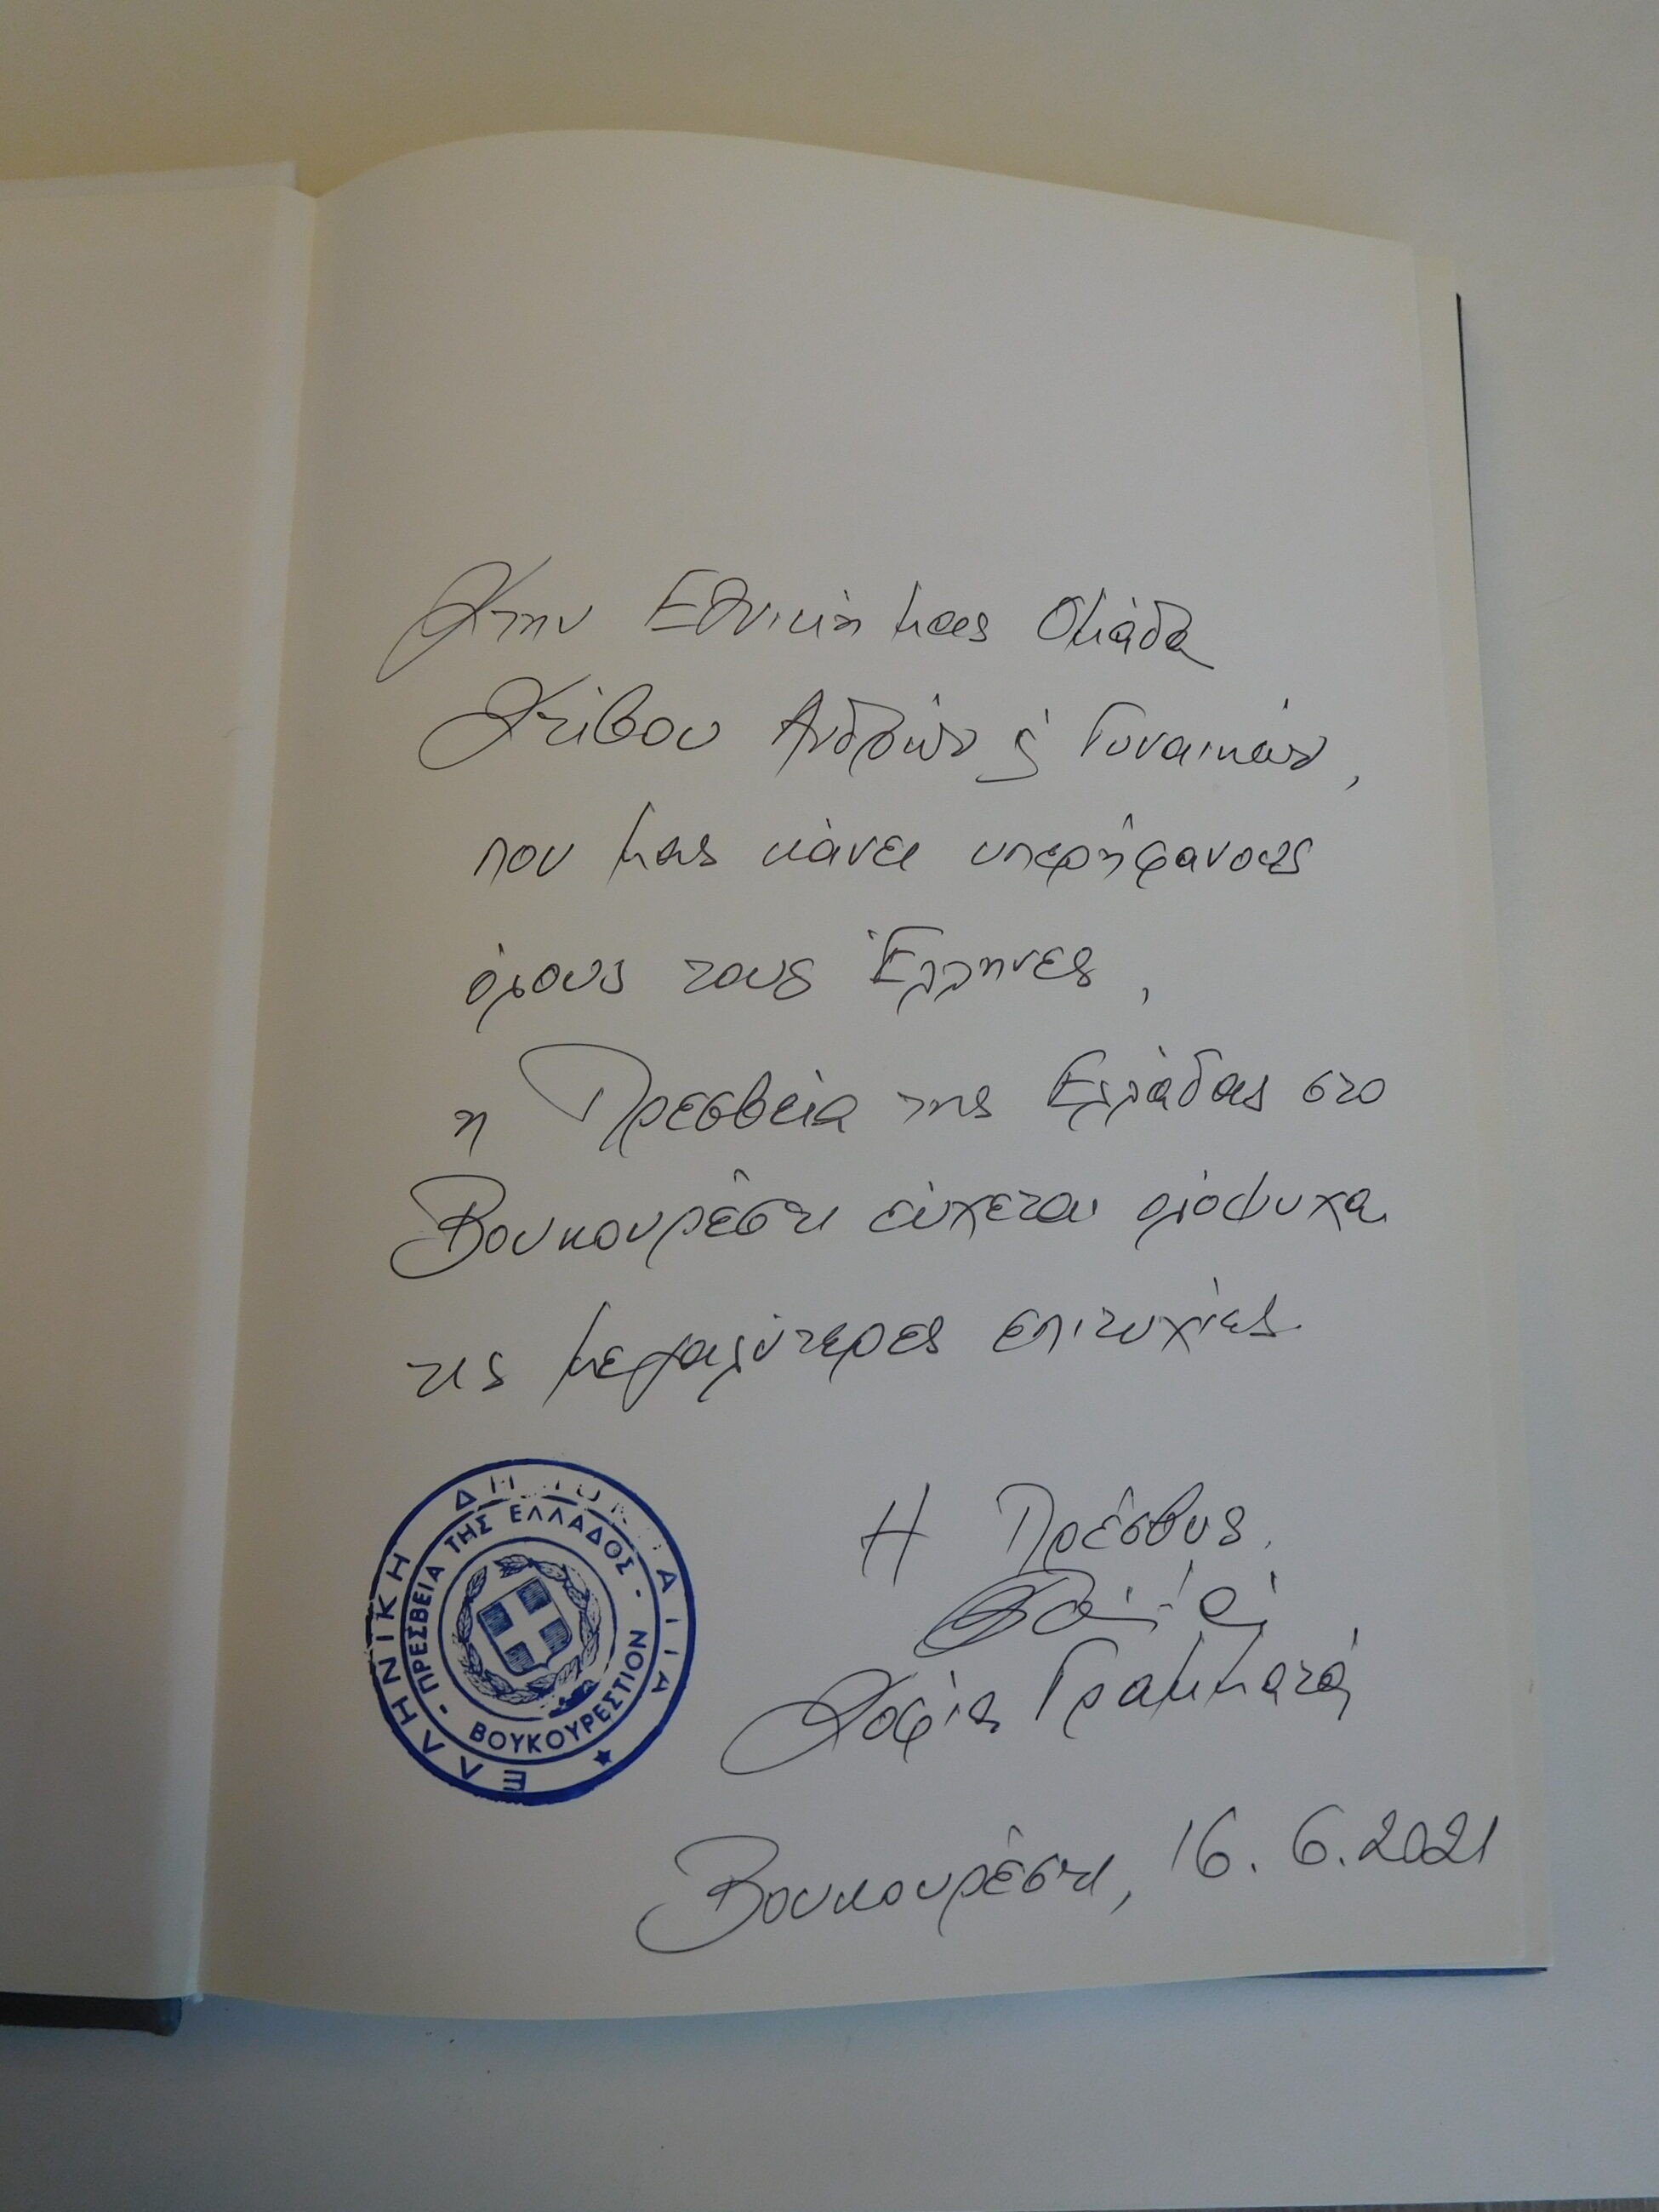 Στην Εθνική μας Ομάδα
Στίβου Ανδρών & Γυναικών,
που μας κάνει υπερήφανους
όλους τους Έλληνες,
η Πρεσβεία της Ελλάδας στο
Βουκουρέστι εύχεται ολόψυχα
τις μεγαλύτερες επιτυχίες.
Η Πρέσβυς
Σοφία Γραμματά
Βουκουρέστι, 16.6.2021
ΕΛΛΗΝΙΚΗ
ΠΡΕΣΒΕΙΑ ΤΗΣ ΕΛΛΑΔΟΣ - ΒΟΥΚΟΥΡΕΣΤΙΟΝ -